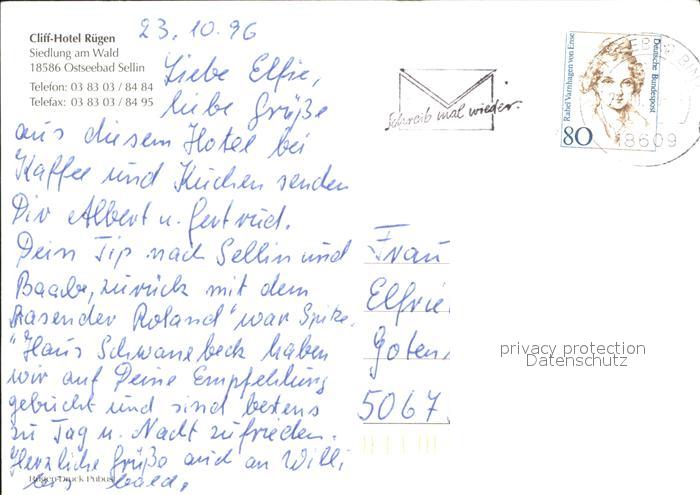 Cliff-Hotel Rügen
Siedlung am Wald
18586 Ostseebad Sellin
Telefon: 03 83 03 / 84 84
Telefax: 03 83 03 / 84 95
23.10.96
Liebe Elfie,
liebe Grüße
aus diesem Hotel bei
Kaffee und Kuchen senden
Dir Albert u. Gertrud.
Dein Tip nach Sellin und
Baabe, zurück mit dem
"Rasender Roland" war Spitze.
"Haus Schwanebeck haben
wir auf Deine Empfehlung
gebucht und sind bestens
zu Tag u. Nacht zufrieden.
Herzliche Grüße auch an Willi,
bis bald,
Rügen-Druck Putbus
Schreib mal wieder.
Rahel Varnhagen von Ense
Deutsche Bundespost
80
18609
Frau
Elfrie
Goten
5067
privacy protection
Datenschutz